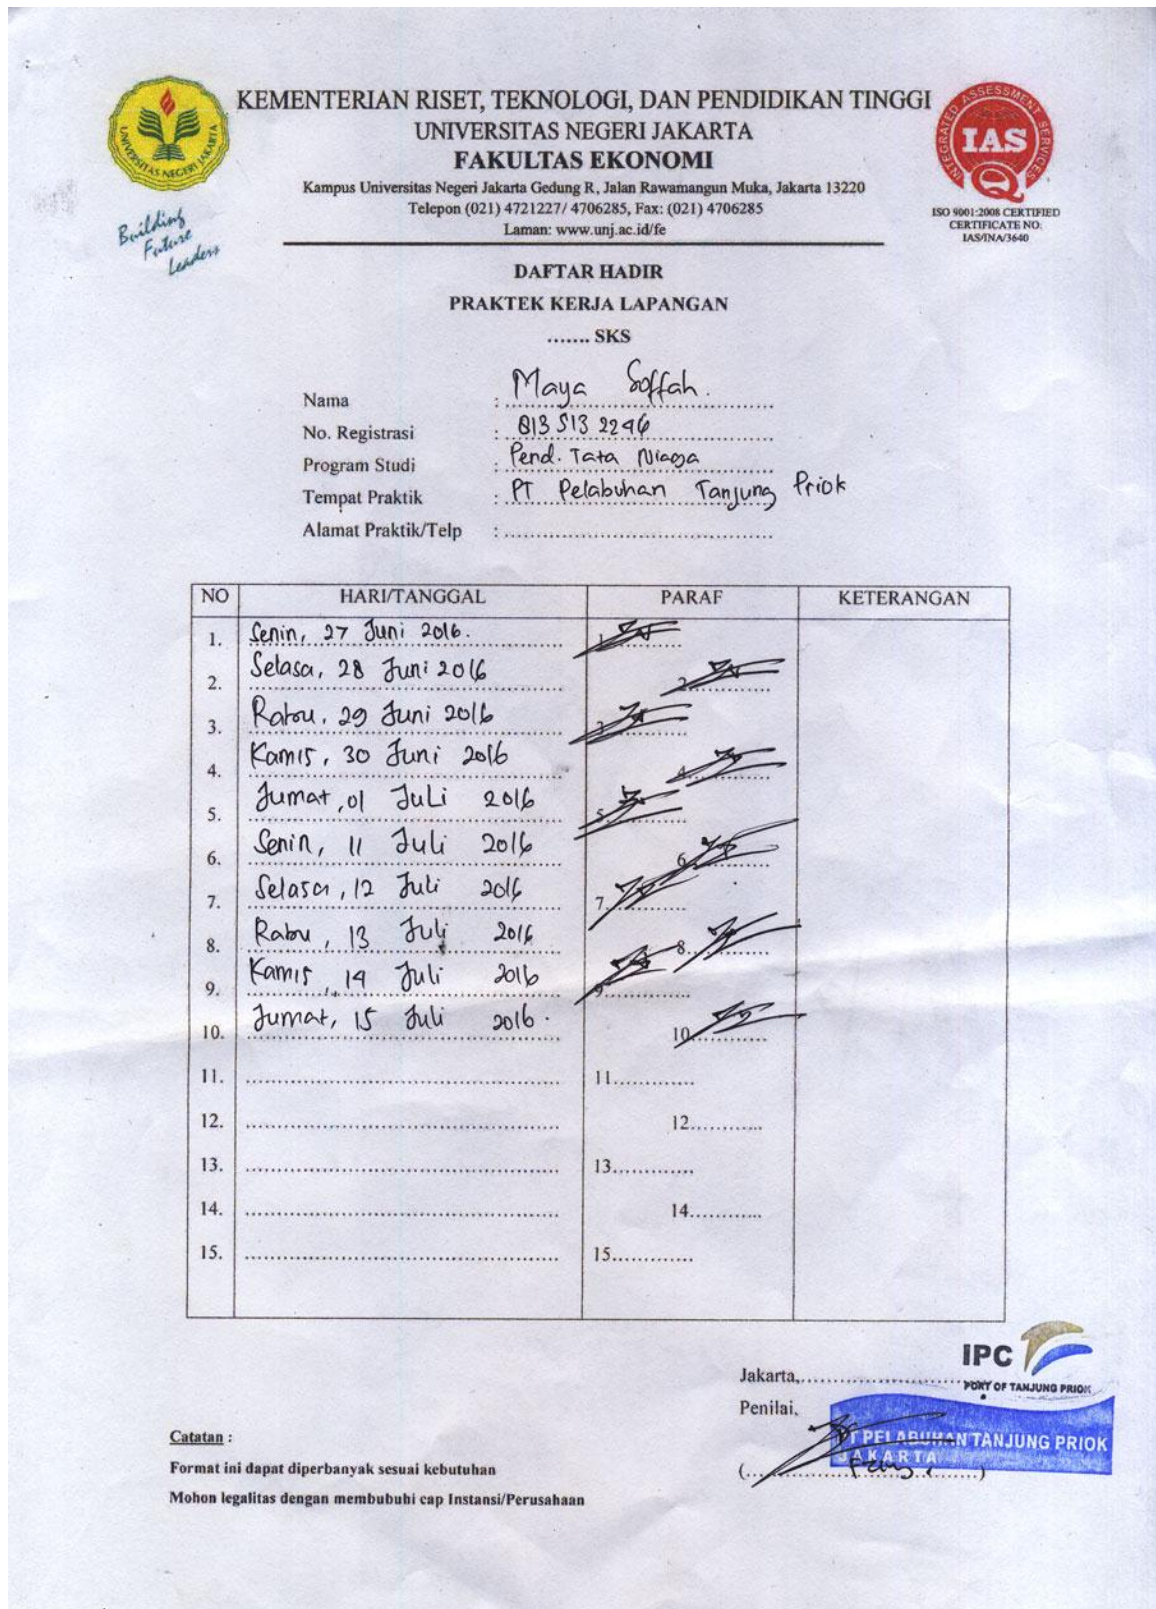 KEMENTERIAN RISET, TEKNOLOGI, DAN PENDIDIKAN TINGGI
UNIVERSITAS NEGERI JAKARTA
FAKULTAS EKONOMI
Kampus Universitas Negeri Jakarta Gedung R, Jalan Rawamangun Muka, Jakarta 13220
Telepon (021) 4721227/ 4706285, Fax: (021) 4706285
Laman: www.unj.ac.id/fe
UNIVERSITAS NEGERI JAKARTA
Building
Future
Leaders
INTEGRATED ASSESSMENT SERVICES
IAS
Q
ISO 9001:2008 CERTIFIED
CERTIFICATE NO:
IAS/INA/3640
DAFTAR HADIR
PRAKTEK KERJA LAPANGAN
....... SKS
Nama : Maya Soffah.
No. Registrasi : 813 513 2246
Program Studi : Pend. Tata Niaga
Tempat Praktik : PT Pelabuhan Tanjung Priok
Alamat Praktik/Telp : ........................................
NO HARI/TANGGAL PARAF KETERANGAN
1. Senin, 27 Juni 2016. 1
2. Selasa, 28 Juni 2016 2
3. Rabu, 29 Juni 2016 3
4. Kamis, 30 Juni 2016 4
5. Jumat, 01 Juli 2016 5.
6. Senin, 11 Juli 2016 6.
7. Selasa, 12 Juli 2016 7.
8. Rabu, 13 Juli 2016 8.
9. Kamis, 14 Juli 2016 9.
10. Jumat, 15 Juli 2016. 10.
11. ........................................ 11.............
12. ........................................ 12............
13. ........................................ 13.............
14. ........................................ 14............
15. ........................................ 15.............
IPC
PORT OF TANJUNG PRIOK
Jakarta,........................
Penilai,
PT PELABUHAN TANJUNG PRIOK
JAKARTA
(........................)
Catatan :
Format ini dapat diperbanyak sesuai kebutuhan
Mohon legalitas dengan membubuhi cap Instansi/Perusahaan